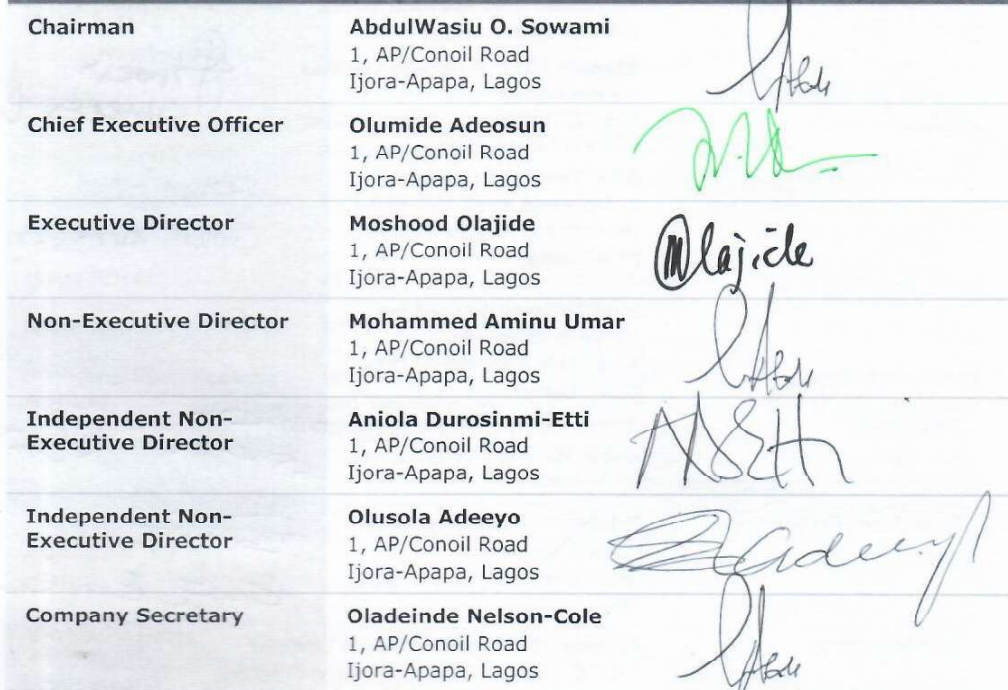 Chairman
AbdulWasiu O. Sowami
1, AP/Conoil Road
Ijora-Apapa, Lagos
Chief Executive Officer
Olumide Adeosun
1, AP/Conoil Road
Ijora-Apapa, Lagos
Executive Director
Moshood Olajide
1, AP/Conoil Road
Ijora-Apapa, Lagos
Olajide
Non-Executive Director
Mohammed Aminu Umar
1, AP/Conoil Road
Ijora-Apapa, Lagos
Independent Non-
Executive Director
Aniola Durosinmi-Etti
1, AP/Conoil Road
Ijora-Apapa, Lagos
Independent Non-
Executive Director
Olusola Adeeyo
1, AP/Conoil Road
Ijora-Apapa, Lagos
Company Secretary
Oladeinde Nelson-Cole
1, AP/Conoil Road
Ijora-Apapa, Lagos